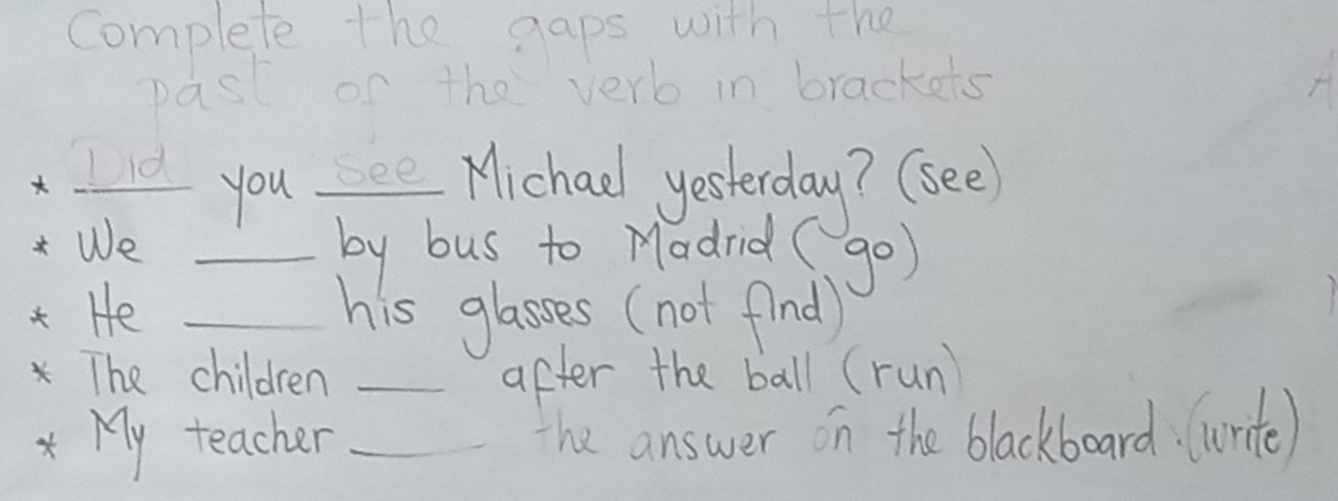 Complete the gaps with the
past of the verb in brackets
* Did you see Michael yesterday? (see)
* We ____ by bus to Madrid (go)
* He ____ his glasses (not find)
* The children ____ after the ball (run)
* My teacher ____ the answer on the blackboard. (write)